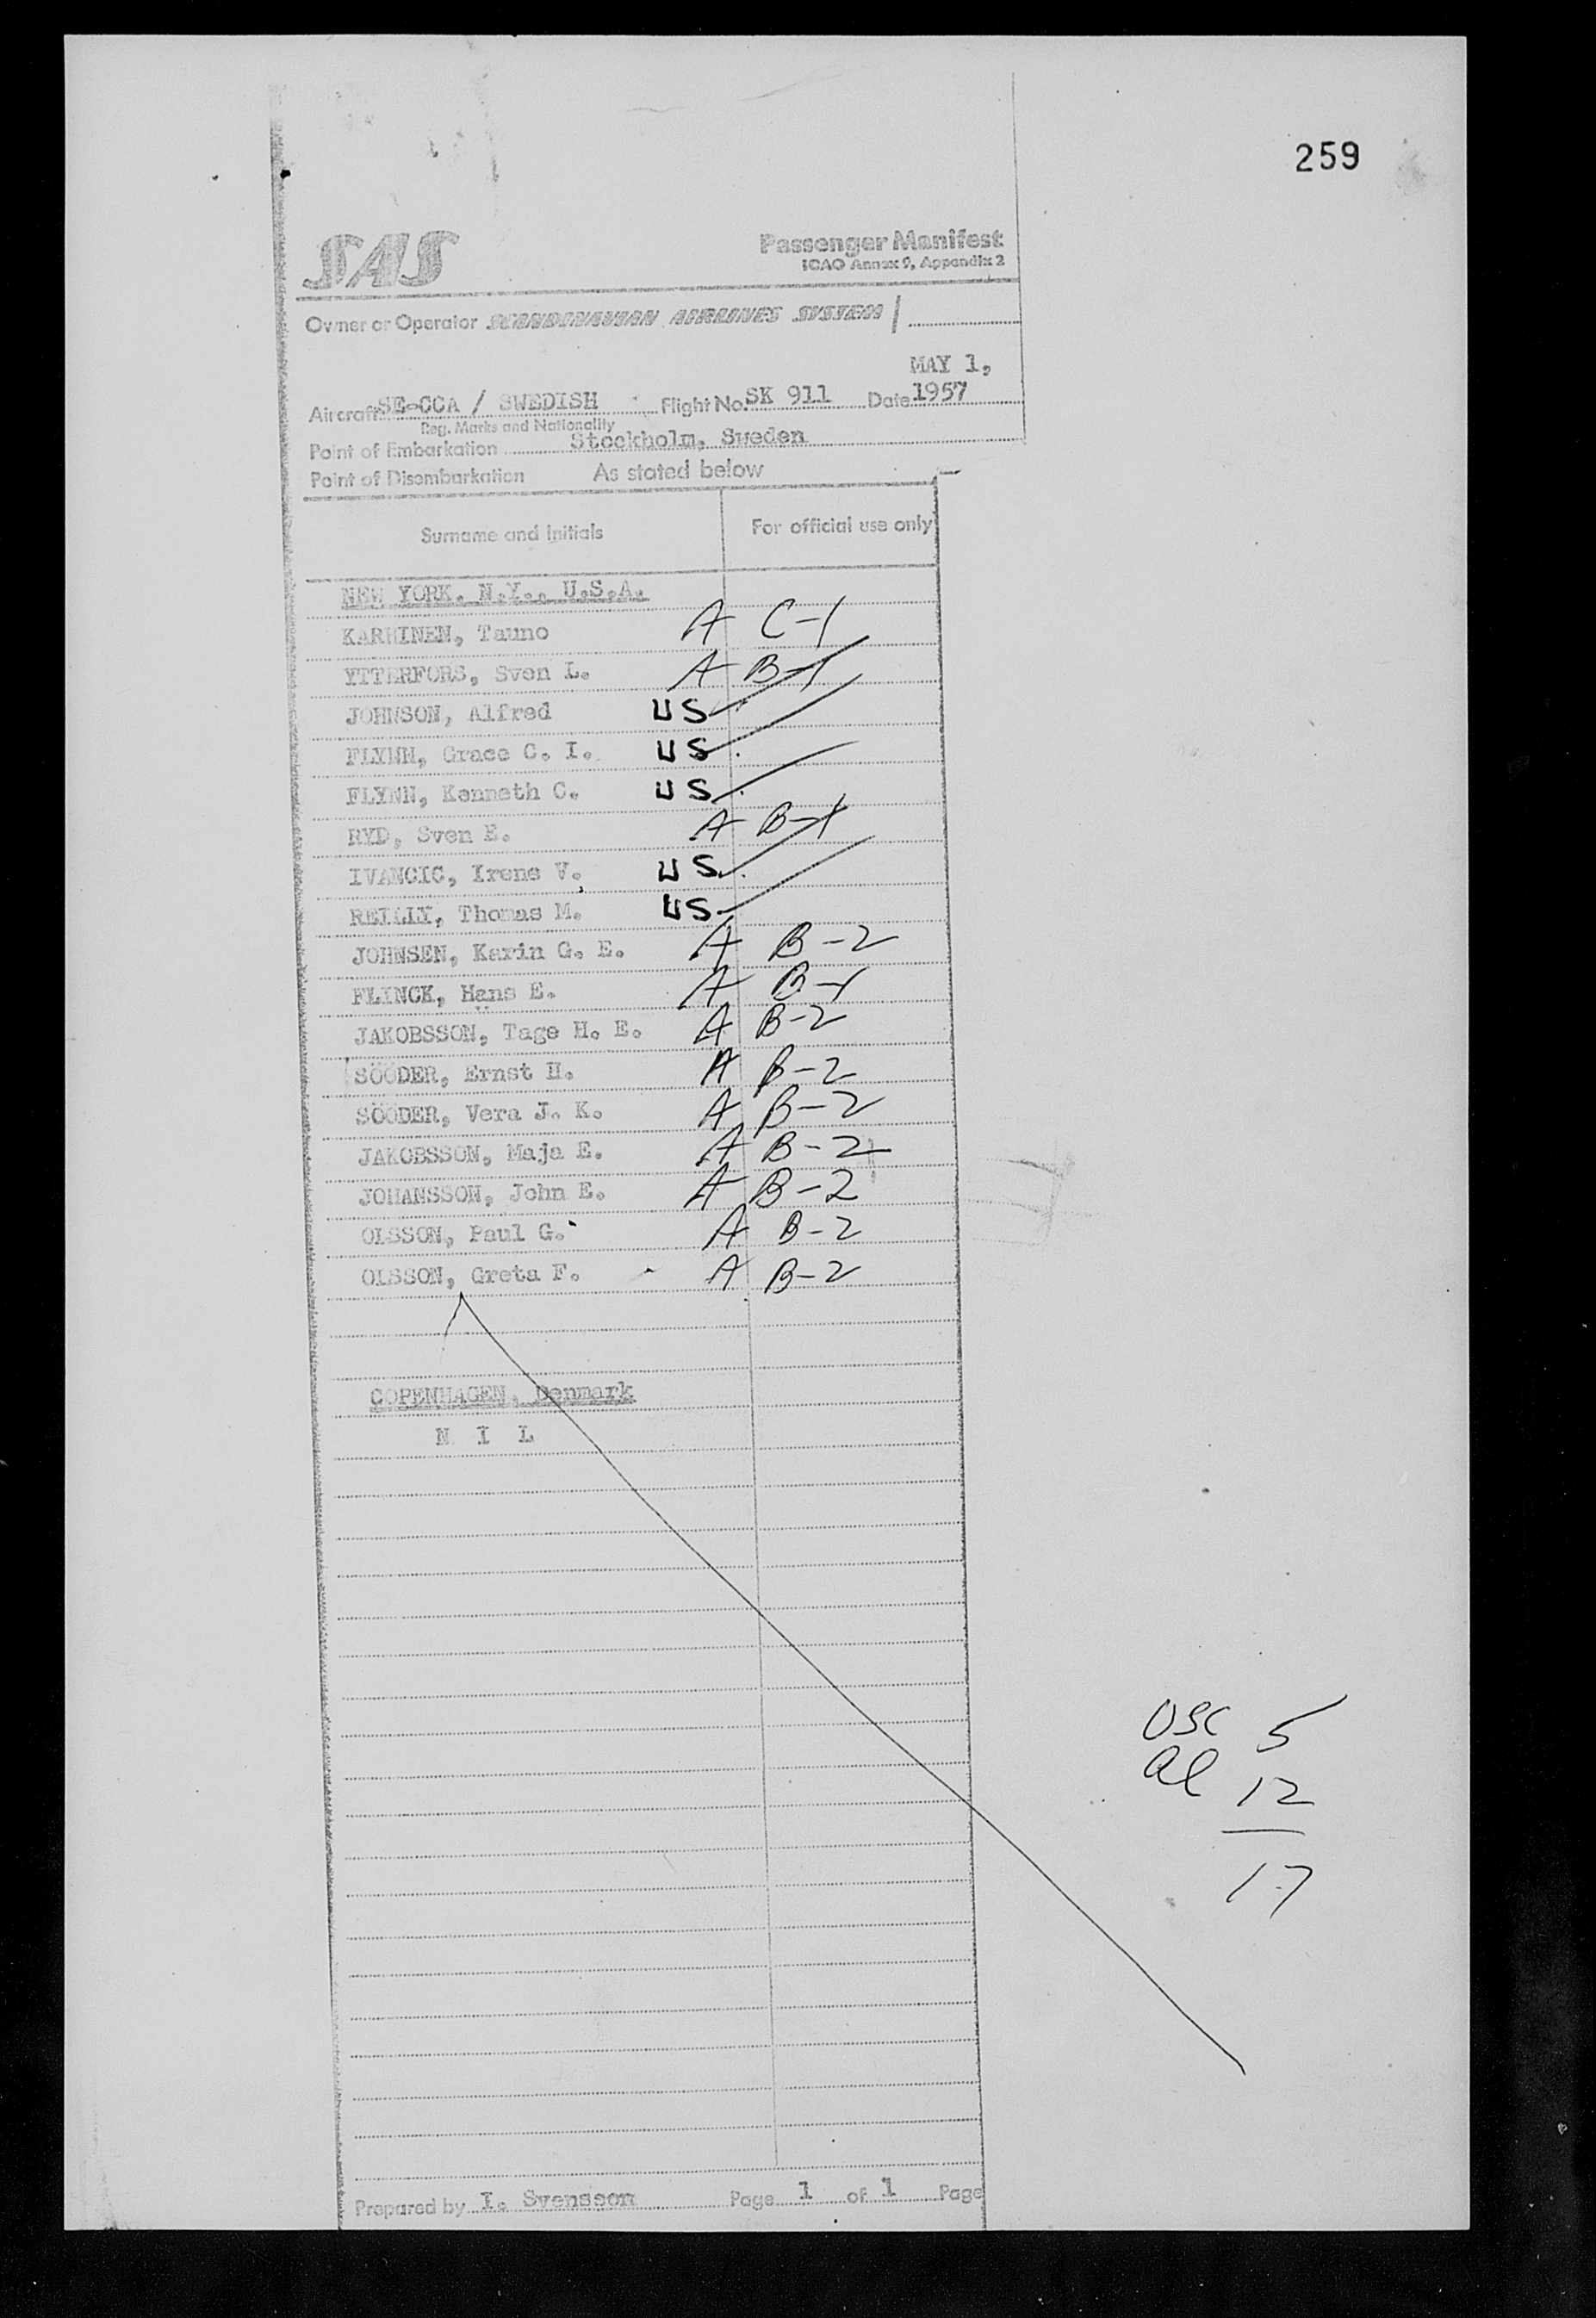 259
SAS
Passenger Manifest
ICAO Annex 9, Appendix 2
Owner or Operator SCANDINAVIAN AIRLINES SYSTEM
MAY 1,
Aircraft SE-CCA / SWEDISH Flight No. SK 911 Date 1957
Reg. Marks and Nationality
Point of Embarkation Stockholm, Sweden
Point of Disembarkation As stated below
Surname and initials For official use only
NEW YORK, N.Y., U.S.A.
KARHINEN, Tauno A C-1
YTTERFORS, Sven L. A B-1
JOHNSON, Alfred US
FLYNN, Grace C. I. US
FLYNN, Kenneth C. US
RYD, Sven E. A B-1
IVANCIC, Irene V. US
REILLY, Thomas M. US
JOHNSEN, Karin G. E. A B-2
FLINCK, Hans E. A B-1
JAKOBSSON, Tage H. E. A B-2
SÖÖDER, Ernst H. A B-2
SÖÖDER, Vera J. K. A B-2
JAKOBSSON, Maja E. A B-2
JOHANSSON, John E. A B-2
OLSSON, Paul G. A B-2
OLSSON, Greta F. A B-2
COPENHAGEN, Denmark
N I L
USC 5
al 12
17
Prepared by I. Svensson Page 1 of 1 Page